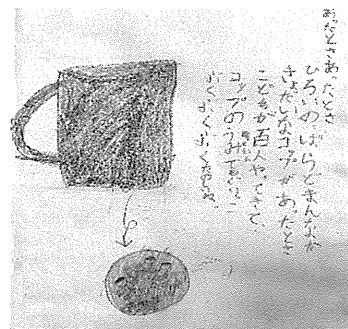 あったとさあったとさ
ひろいのばらどまんなか
きょだいなコップがあったとさ
こどもが百人やってきて、
コップのうみで